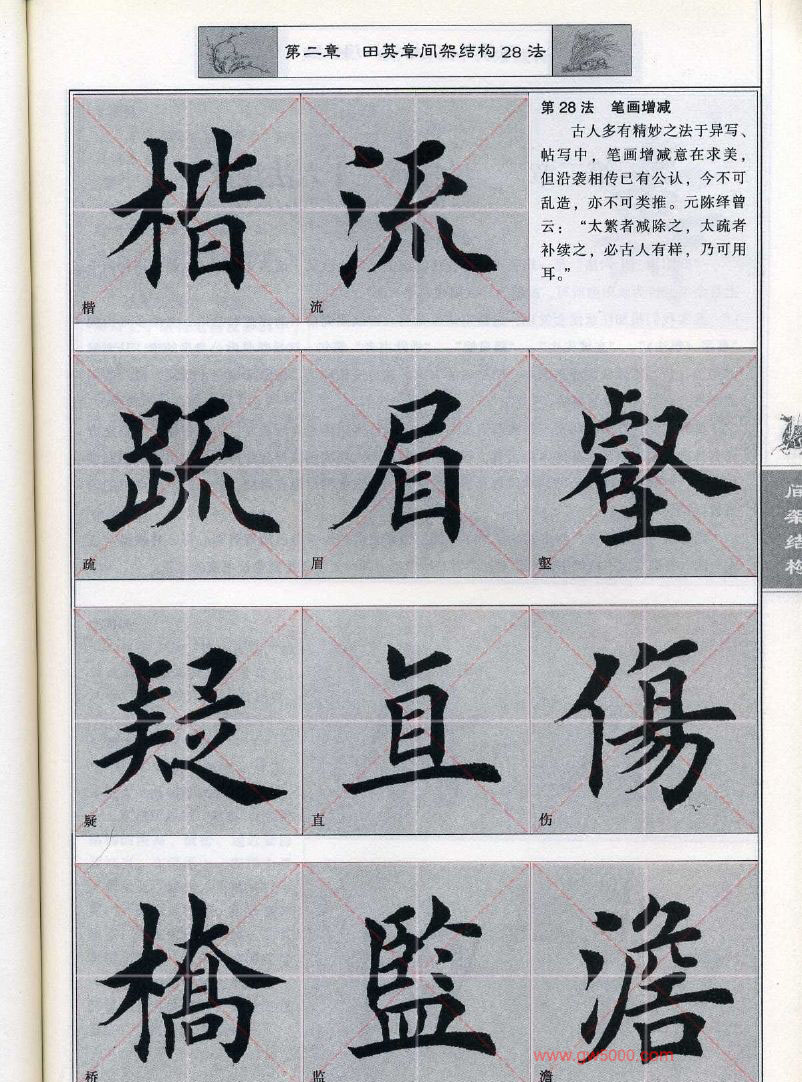 第二章 田英章间架结构28法
楷 流
第28法 笔画增减
古人多有精妙之法于异写、
帖写中，笔画增减意在求美，
但沿袭相传已有公认，今不可
乱造，亦不可类推。元陈绎曾
云：“太繁者减除之，太疏者
补续之，必古人有样，乃可用
耳。”
楷 流
疏 眉 壑
疏 眉 壑
间架结构
疑 直 傷
疑 直 伤
橋 監 澹
桥 监 澹
www.gw5000.com